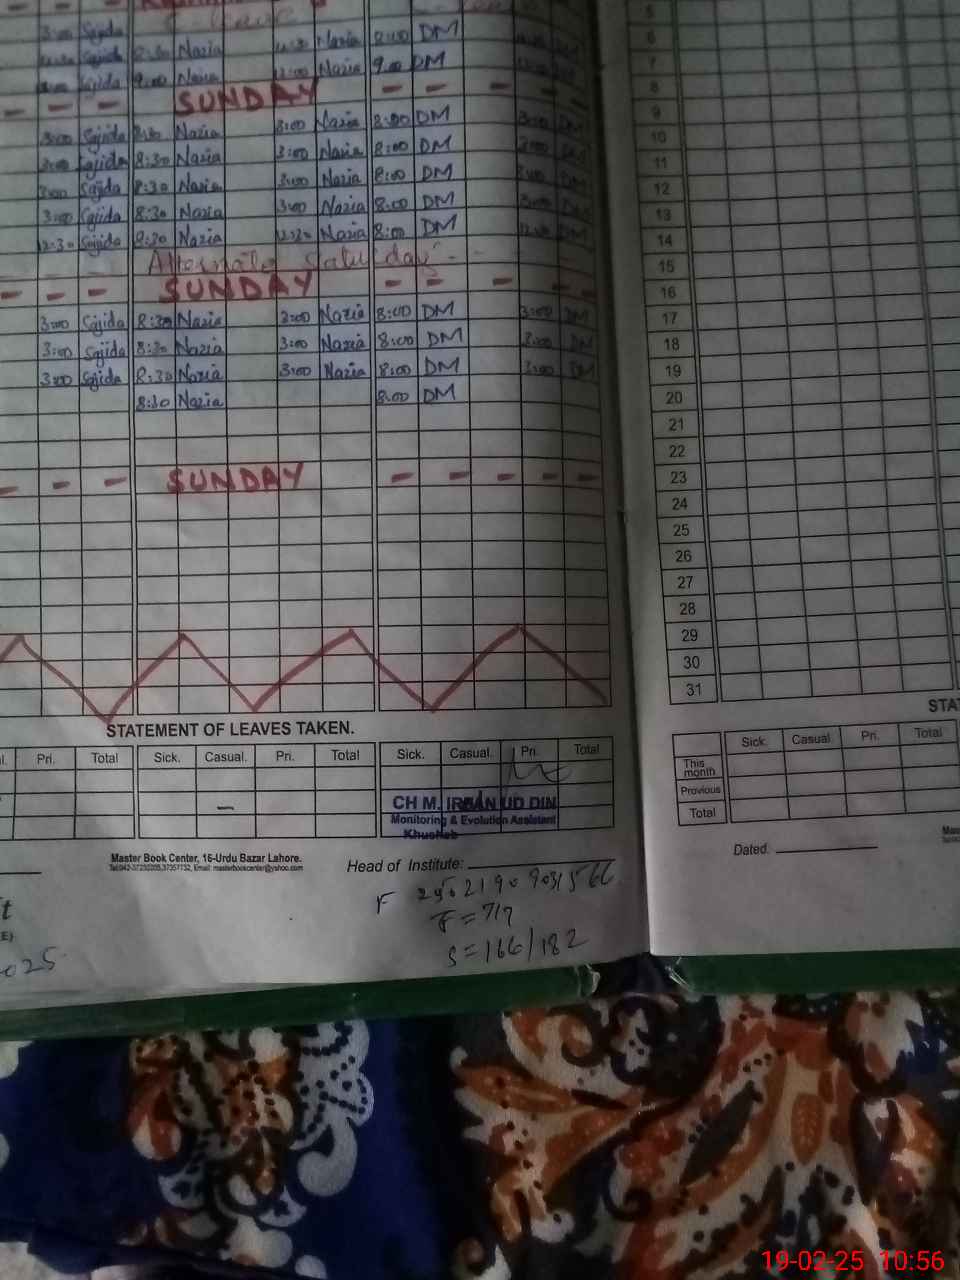 3:00 Sajida
Sajida 8:30 Nazia Nazia 8:00 DM
Sajida 9:00 Nazia 12:00 Nazia 9:00 DM
- - - SUNDAY - - - - -
3:00 Sajida 8:30 Nazia 3:00 Nazia 8:00 DM 3:00 DM
3:00 Sajida 8:30 Nazia 3:00 Nazia 8:00 DM 3:00 DM
3:00 Sajida 8:30 Nazia 3:00 Nazia 8:00 DM 3:00 DM
3:00 Sajida 8:30 Nazia 3:00 Nazia 8:00 DM 3:00 DM
12:30 Sajida 8:30 Nazia 12:30 Nazia 8:00 DM DM
Alternate Saturday
- - - SUNDAY - - - - -
3:00 Sajida 8:30 Nazia 3:00 Nazia 8:00 DM 3:00 DM
3:00 Sajida 8:30 Nazia 3:00 Nazia 8:00 DM 3:00 DM
3:00 Sajida 8:30 Nazia 3:00 Nazia 8:00 DM 3:00 DM
8:30 Nazia 8:00 DM
- - - SUNDAY - - - - -
STATEMENT OF LEAVES TAKEN.
Pri. Total Sick. Casual. Pri. Total Sick. Casual. Pri. Total
CH M. IRFAN UD DIN
Monitoring & Evolution Assistant
Khushab
Master Book Center, 16-Urdu Bazar Lahore.
Head of Institute:
F = 717
S = 166/182
5
6
7
8
9
10
11
12
13
14
15
16
17
18
19
20
21
22
23
24
25
26
27
28
29
30
31
STA
Sick. Casual Pri. Total
This month
Provious
Total
Dated.
19-02-25 10:56